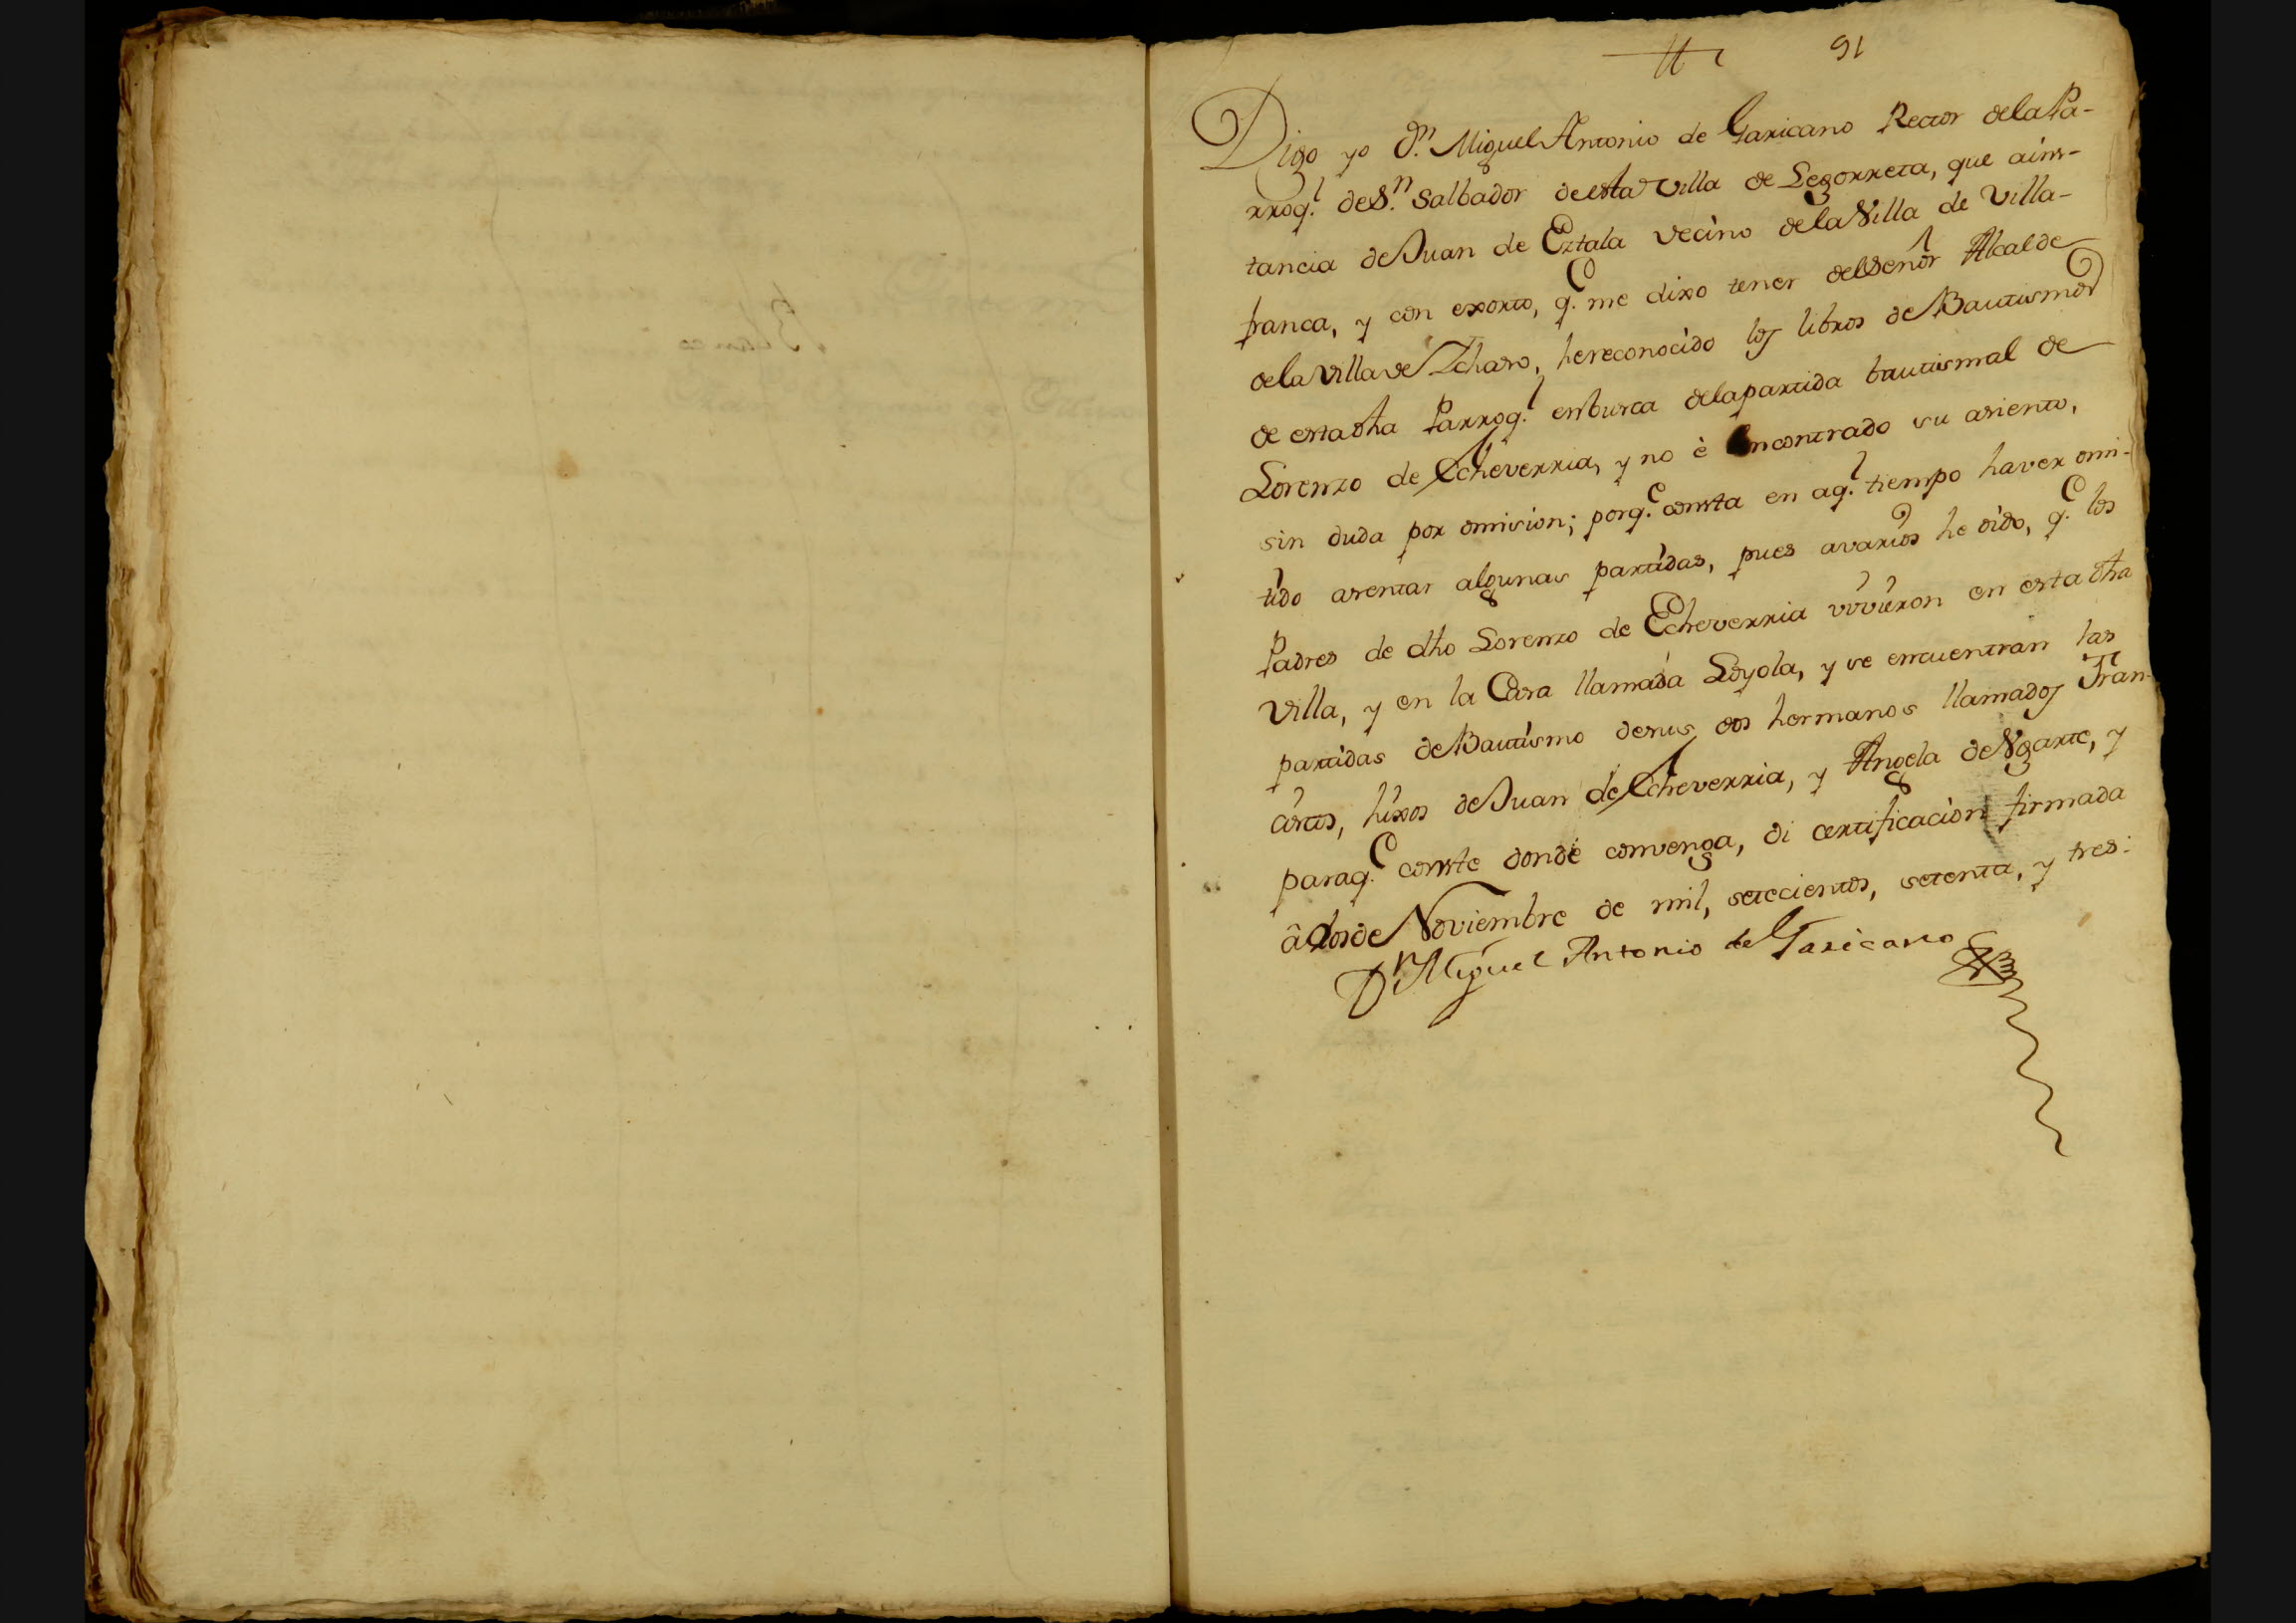 91
Digo yo Dn. Miguel Antonio de Garicano Rector dela Pa-
rroql. de Sn. Salbador de esta Villa de Legorreta, que a ins-
tancia de Juan de Eztala vecino dela Villa de Villa-
franca, y con exorto, qe. me dixo tener del Señor Alcalde
dela Villa de Ichaso, he reconocido los libros de Bautismos
de esta dha Parroql. en busca dela partida bautismal de
Lorenzo de Echeverria, y no è encontrado su asiento,
sin duda por omision; porqe. consta en aql. tiempo haver omi-
tido asentar algunas partidas, pues a varios he oido, qe. los
Padres de dho Lorenzo de Echeverria vivieron en esta dha
Villa, y en la Casa llamada Loyola, y se encuentran las
partidas de Bautismo de sus dos hermanos llamados Fran-
cos, hixos de Juan de Echeverria, y Angela de Ugarte, y
paraqe. conste donde convenga, di certificacion firmada
â dos de Noviembre de mil, setecientos, setenta, y tres.
Dn Miguel Antonio de Garicano